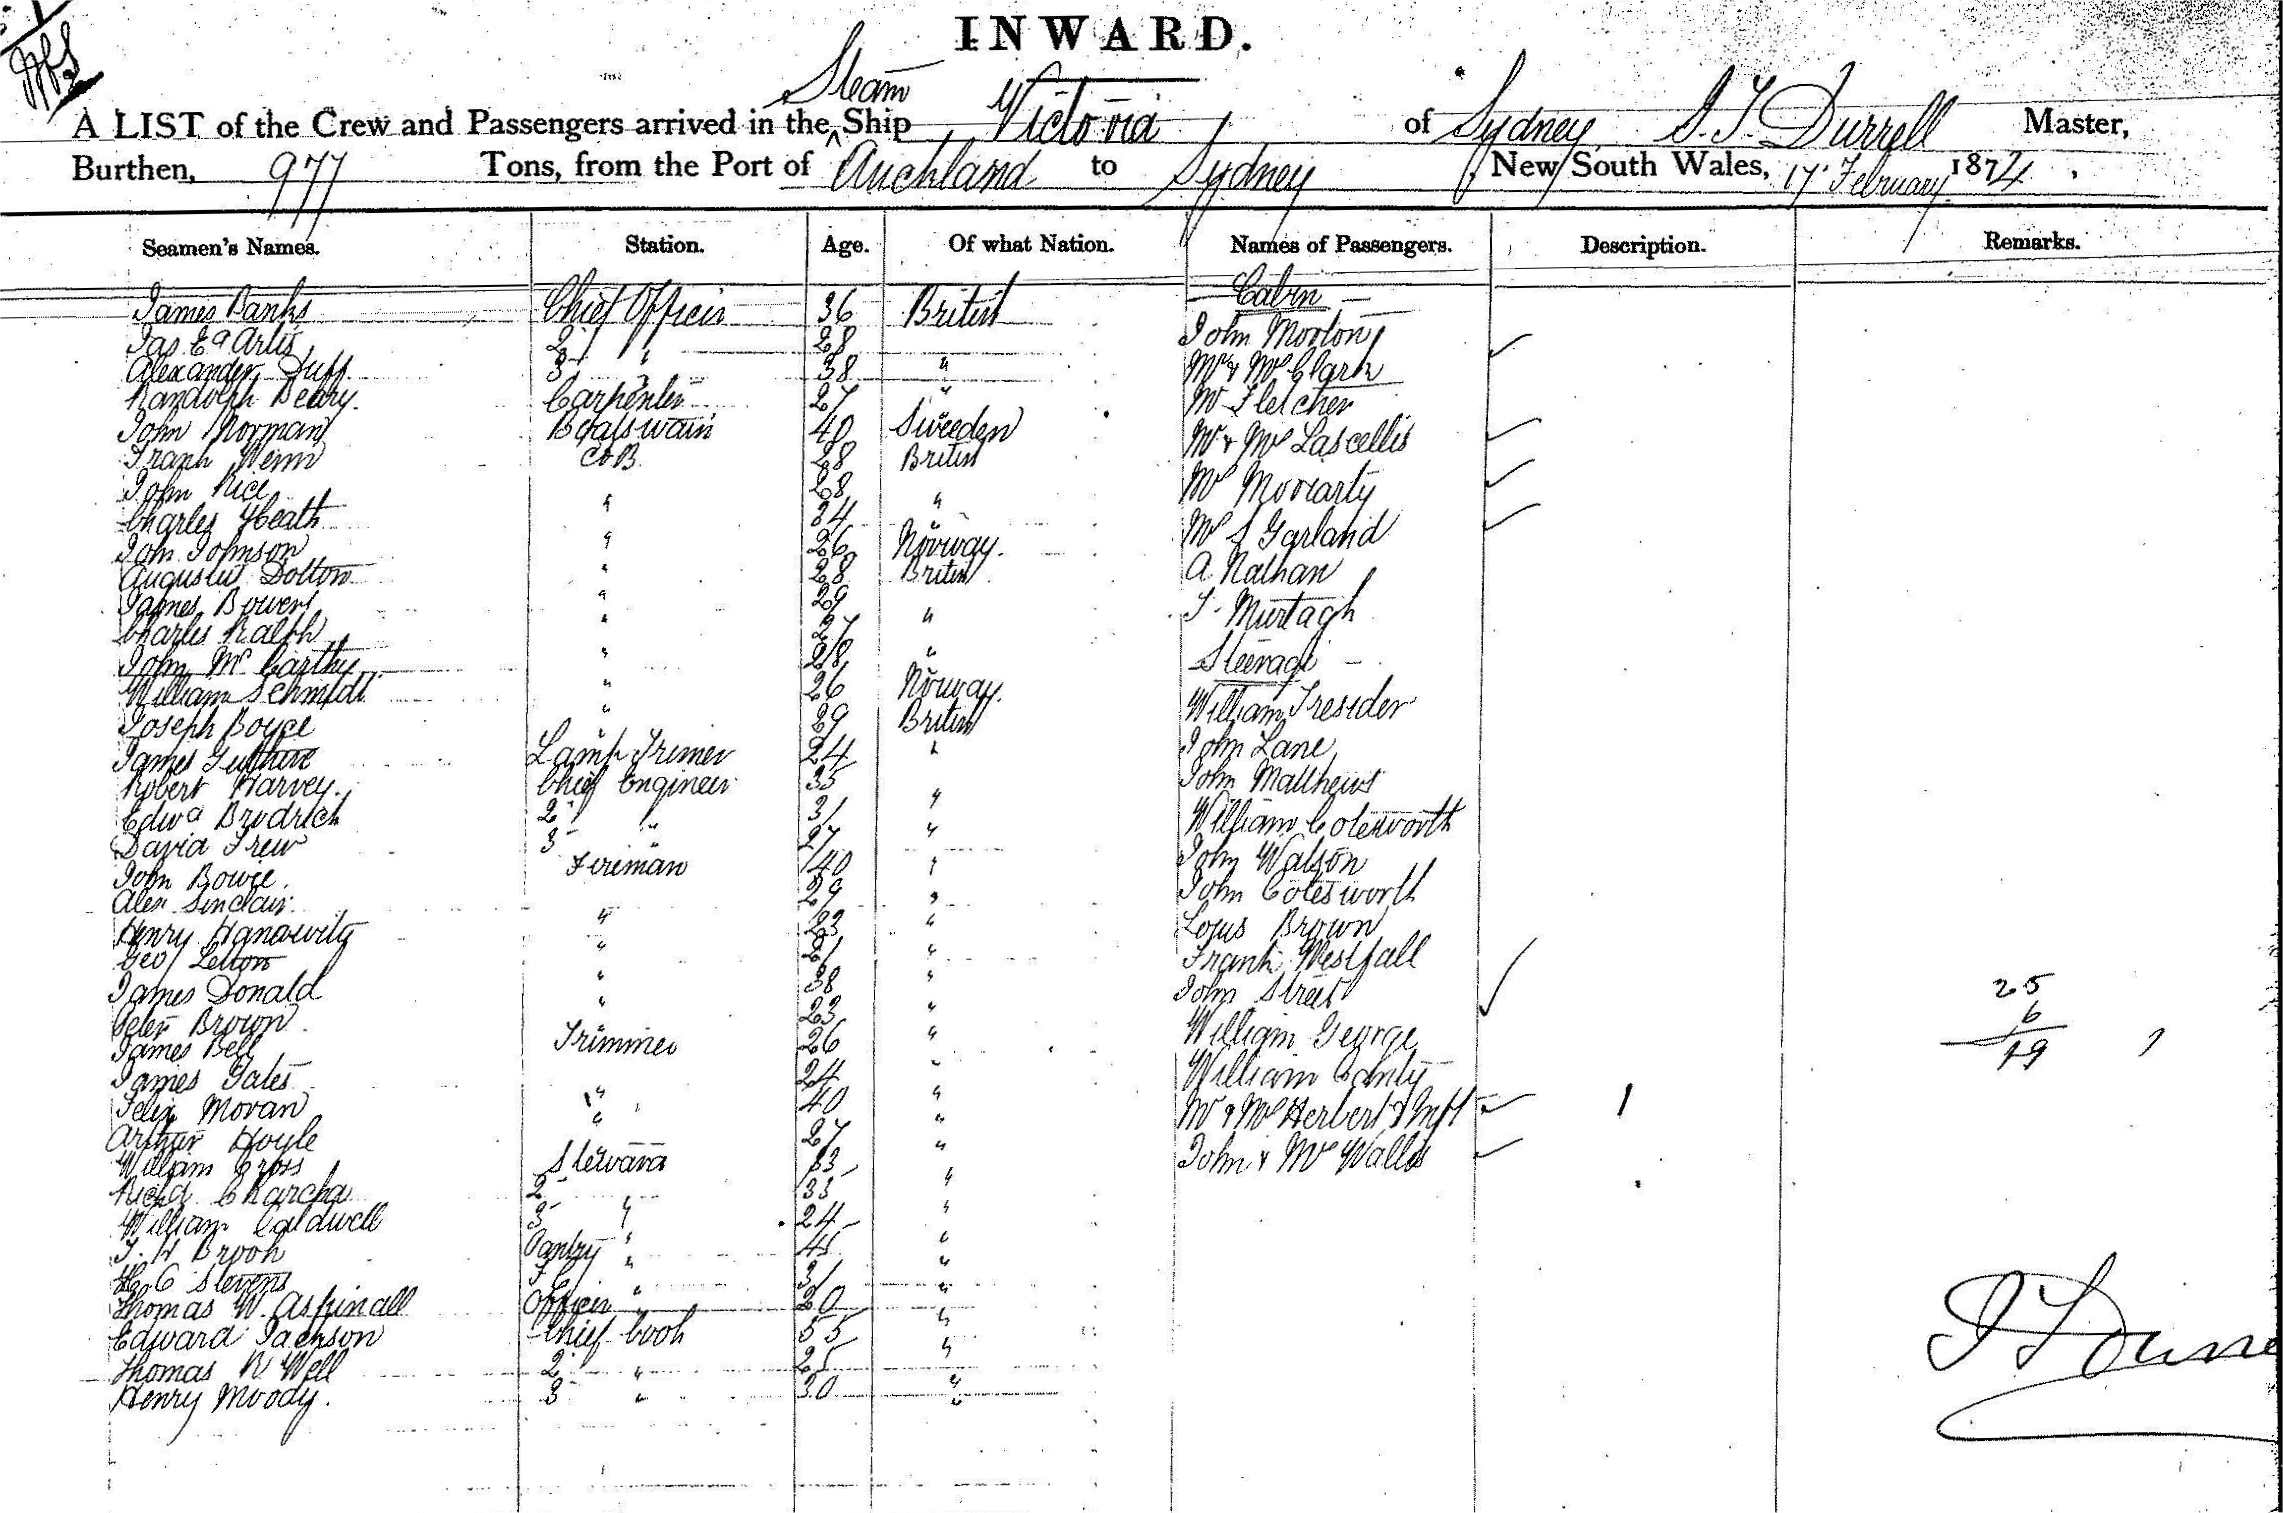 INWARD.
Steam
A LIST of the Crew and Passengers arrived in the ^ Ship Victoria of Sydney, Durrell Master,
Burthen, 977 Tons, from the Port of Auckland to Sydney New South Wales, 17 February 1874.
Seamen's Names. Station. Age. Of what Nation. Names of Passengers. Description. Remarks.
James Banks Chief Officer 36 British Cabin
Jas Artis 2 " 28 John Morton
Alexander Duff 3 " 38 " Mr & Mrs Clark
Randolph Carpenter 27 " Mr Fletcher
John Norman Boatswain 40 Sweeden Mr & Mrs Lascellis
Frank Wenn AB 28 British
John Rice " 28 " Mrs Moriarty
Charles Heath " 24 " Garland
John Johnson " 26 Norway.
Augustus Dolton " 28 British A. Nathan
James Bowers " 29 " Murtagh
Charles Ralph " 27 "
John McCarthy " 28 " Steerage
William Schmidt " 26 Norway. William Tresider
Joseph Boyce " 29 British
James Guthrie Lamp Trimer 24 " John Lane
Robert Harvey. Chief Engineer 35 John Matthews
Edwd Brodrick 2 " 31 " William Cotesworth
David Frew 3 " 27 "
John Bowie. Fireman 40 " John Watson
Alex Sinclair. 29 " John Cotesworth
Henry " 23 " Louis Brown
Geo " 21 " Frank Westfall
James Donald " 38 " John Street 25
Peter Brown " 23 " 6
James Bell Trimmer 26 " William George 19
James Gates 24 " William
Felix Moran " 40 " Mr & Mrs Herbert & Inft 1
Arthur Hoyle " 27 "
William Cross Steward 33 John & Mrs Wallis
Richd 2 33 "
William Caldwell 3 " 24 "
Brook Pantry " 45 "
Stevens F C " 31 "
Thomas W. Aspinall Officers " 20 "
Edward Jackson Chief Cook 55 "
Thomas R Well 2 " 25 "
Henry Moody. 3 " 30 "